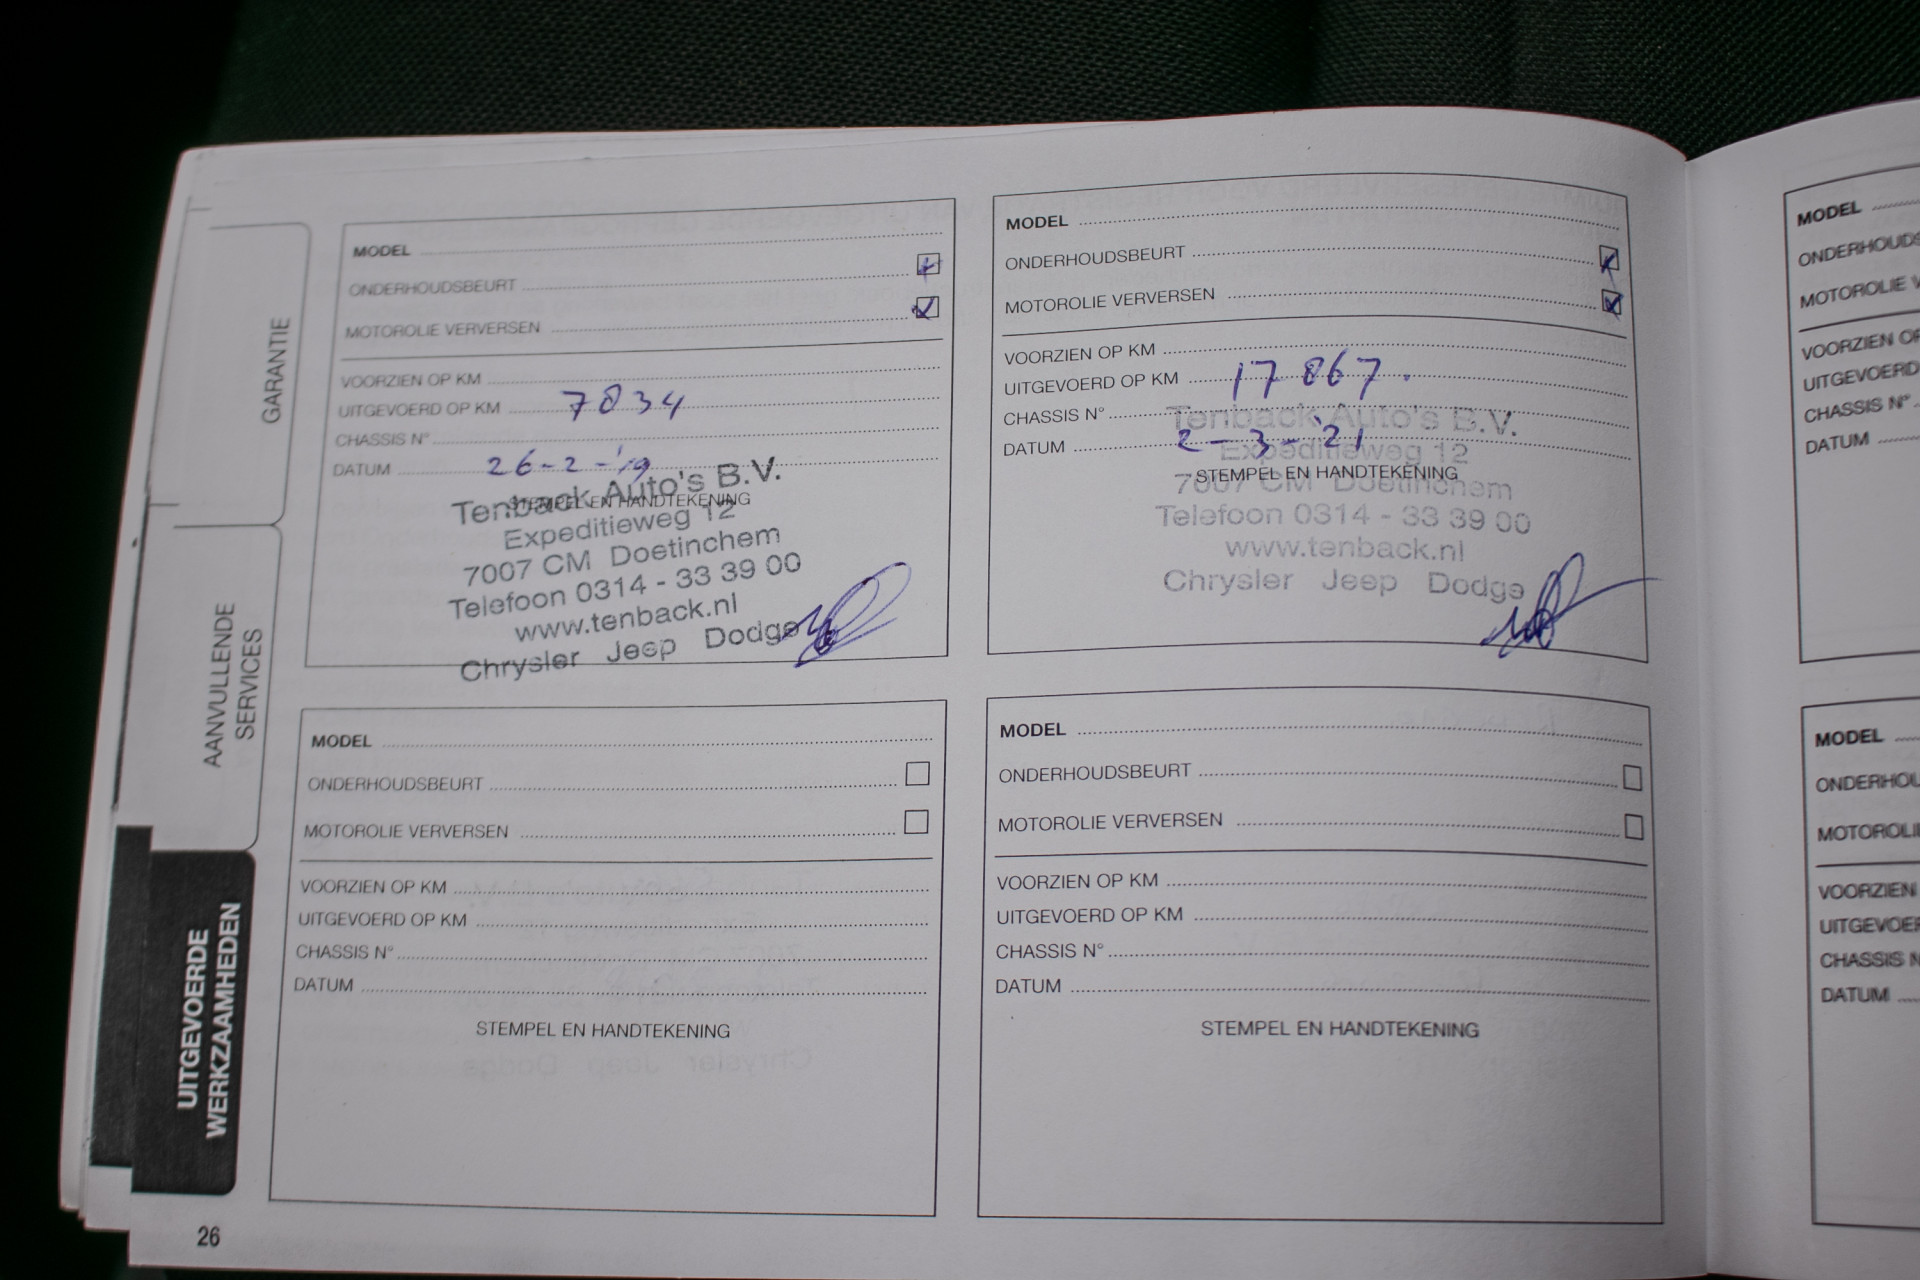 GARANTIE
AANVULLENDE
SERVICES
UITGEVOERDE
WERKZAAMHEDEN
26
MODEL
ONDERHOUDSBEURT
MOTOROLIE VERVERSEN
VOORZIEN OP KM
UITGEVOERD OP KM 7834
CHASSIS N°
DATUM 26-2-'19
STEMPEL EN HANDTEKENING
Tenback Auto's B.V.
Expeditieweg 12
7007 CM Doetinchem
Telefoon 0314 - 33 39 00
www.tenback.nl
Chrysler Jeep Dodge
MODEL
ONDERHOUDSBEURT
MOTOROLIE VERVERSEN
VOORZIEN OP KM
UITGEVOERD OP KM 17867.
CHASSIS N°
DATUM 2-3-'21
STEMPEL EN HANDTEKENING
Tenback Auto's B.V.
Expeditieweg 12
7007 CM Doetinchem
Telefoon 0314 - 33 39 00
www.tenback.nl
Chrysler Jeep Dodge
MODEL
ONDERHOUDSBEURT
MOTOROLIE VERVERSEN
VOORZIEN OP KM
UITGEVOERD OP KM
CHASSIS N°
DATUM
STEMPEL EN HANDTEKENING
MODEL
ONDERHOUDSBEURT
MOTOROLIE VERVERSEN
VOORZIEN OP KM
UITGEVOERD OP KM
CHASSIS N°
DATUM
STEMPEL EN HANDTEKENING
MODEL
ONDERHOUDS
MOTOROLIE V
VOORZIEN OP
UITGEVOERD
CHASSIS N°
DATUM
MODEL
ONDERHOU
MOTOROLI
VOORZIEN
UITGEVOER
CHASSIS N
DATUM